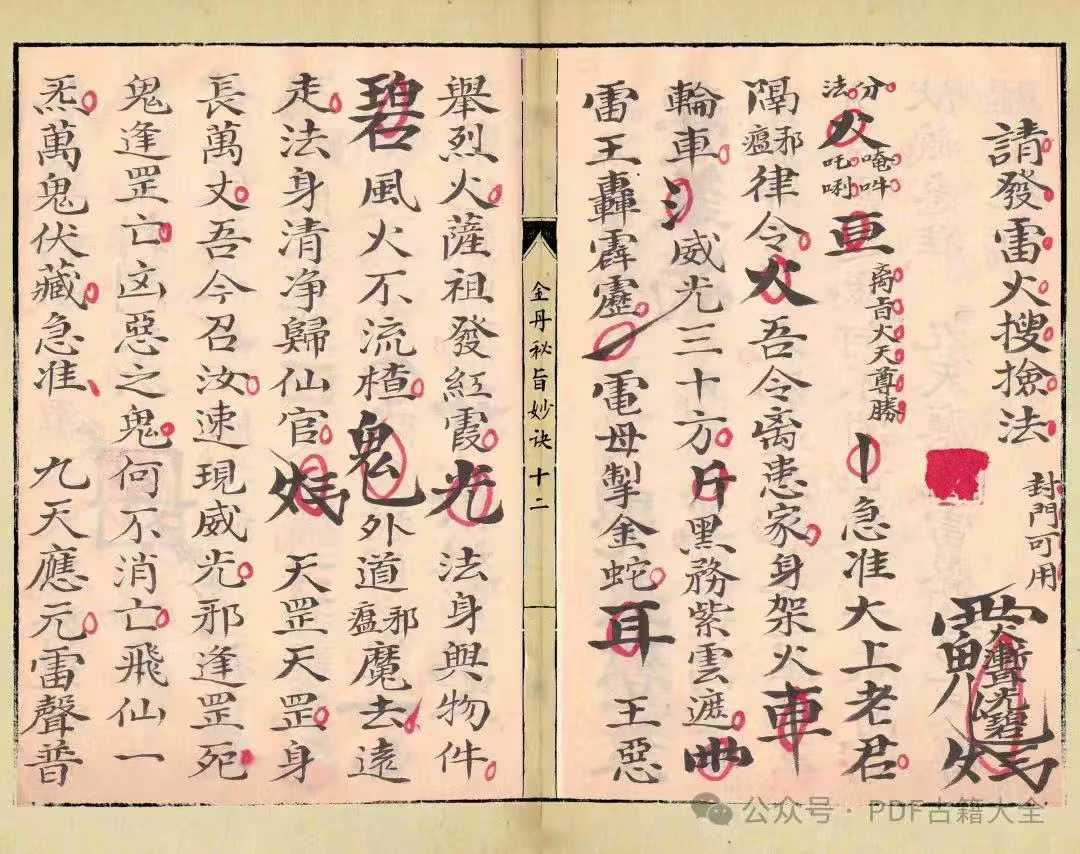 請發雷火搜撿法 封門可用
分法火唵吽吒唎 亘 离宫火天尊勝 丨 急准大上老君
隔邪瘟律令火吾令离患家身架火車
輪車 氵 威光三十方斤黑務紫雲遮
雷王轟霹靂 電母掣金蛇耳 王惡
金丹祕旨妙訣 十二
舉烈火薩祖發紅霞光 法身與物件
碧風火不流楂鬼外道邪瘟魔去遠
走法身清净歸仙官 天罡天罡身
長萬丈吾今召汝速現威光邪逢罡死
鬼逢罡亡凶惡之鬼何不消亡飛仙一
炁萬鬼伏藏急准 九天應元雷聲普
公众号 · PDF古籍大全